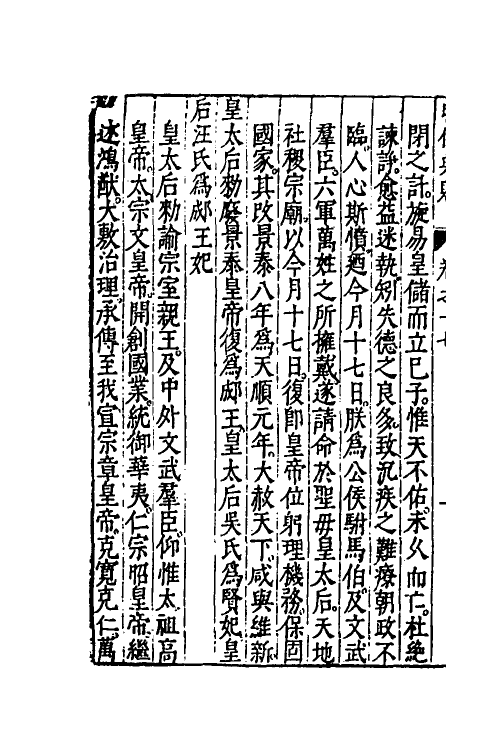 閉之訐。旋易皇儲而立已子。惟天不佑。未久而亡。杜絶
諫諍。愈益迷執。矧失德之良多。致沉疾之難療。朝政不
臨。人心斯憤。廼今月十七日。朕為公侯駙馬伯。及文武
羣臣。六軍萬姓之所擁戴。遂請命於聖母皇太后。天地
社稷宗廟。以今月十七日。復卽皇帝位。躬理機務。保固
國家。其攺景泰八年為天順元年。大赦天下。咸與維新
皇太后勑廢景泰皇帝復為郕王。皇太后吳氏為賢妃。皇
后汪氏為郕王妃
皇太后勑諭宗室親王。及中外文武羣臣。仰惟太祖高
皇帝。太宗文皇帝。開創國業。統御華夷。仁宗昭皇帝。繼
述鴻猷。大敷治理。承傳至我宣宗章皇帝。克寬克仁。萬